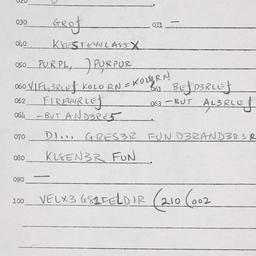 020
030 GROʃ 031 —
040 KRESTEWLASSX
050 PURPL, ) PURPUR
060 VIFL3RLEʃ KOLORN = KOWRN 061 BEʃD3RLEʃ
062 FIREWRLEʃ 063 -RUT AL3RLEʃ
064 -BUT AND3RES
070 DI... GRES3R FUND3RAND3R3R
080 KLEEN3R FUN .
090 —
100 VELX3 GS1FELDIR (210 (002